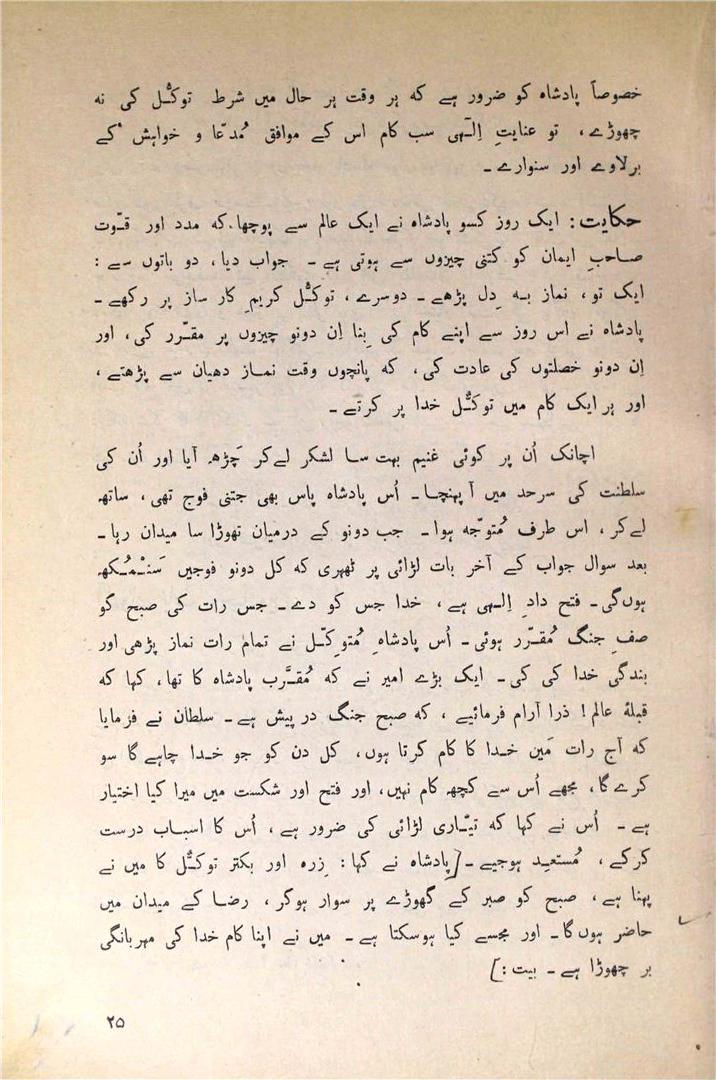 خصوصاً پادشاہ کو ضرور ہے کہ ہر وقت ہر حال میں شرط توکّل کی نہ
چھوڑے، تو عنایتِ اِلٰہی سب کام اس کے موافق مُدّعا و خواہش کے
برلاوے اور سنوارے۔
حکایت: ایک روز کسو پادشاہ نے ایک عالم سے پوچھا کہ مدد اور قوّت
صاحبِ ایمان کو کتنی چیزوں سے ہوتی ہے۔ جواب دیا، دو باتوں سے:
ایک تو، نماز بہ دِل پڑھے۔ دوسرے، توکّل کریمِ کار ساز پر رکھے۔
پادشاہ نے اس روز سے اپنے کام کی بِنا اِن دونو چیزوں پر مقرّر کی، اور
اِن دونو خصلتوں کی عادت کی، کہ پانچوں وقت نماز دھیان سے پڑھتے،
اور ہر ایک کام میں توکّل خدا پر کرتے۔
اچانک اُن پر کوئی غنیم بہت سا لشکر لے کر چَڑھ آیا اور اُن کی
سلطنت کی سرحد میں آ پہنچا۔ اُس پادشاہ پاس بھی جتنی فوج تھی، ساتھ
لے کر، اس طرف مُتوجّہ ہوا۔ جب دونو کے درمیان تھوڑا سا میدان رہا۔
بعد سوال جواب کے آخر بات لڑائی پر ٹھہری کہ کل دونو فوجیں سَنْمُکھ
ہوں گی۔ فتح دادِ اِلٰہی ہے، خدا جس کو دے۔ جس رات کی صبح کو
صفِ جنگ مُقرّر ہوئی۔ اُس پادشاہِ مُتوکِّل نے تمام رات نماز پڑھی اور
بندگی خدا کی کی۔ ایک بڑے امیر نے کہ مُقرَّب پادشاہ کا تھا، کہا کہ
قبلۂ عالم! ذرا آرام فرمائیے، کہ صبح جنگ در پیش ہے۔ سلطان نے فرمایا
کہ آج رات مَیں خدا کا کام کرتا ہوں، کل دن کو جو خدا چاہے گا سو
کرے گا، مجھے اُس سے کچھ کام نہیں، اور فتح اور شکست میں میرا کیا اختیار
ہے۔ اُس نے کہا کہ تیّاری لڑائی کی ضرور ہے، اُس کا اسباب درست
کرکے، مُستعِد ہوجیے۔ [پادشاہ نے کہا: زِرہ اور بکتر توکّل کا میں نے
پہنا ہے، صبح کو صبر کے گھوڑے پر سوار ہوکر، رضا کے میدان میں
حاضر ہوں گا۔ اور مجسے کیا ہوسکتا ہے۔ میں نے اپنا کام خدا کی مہربانگی
پر چھوڑا ہے۔ بیت:]
۲۵